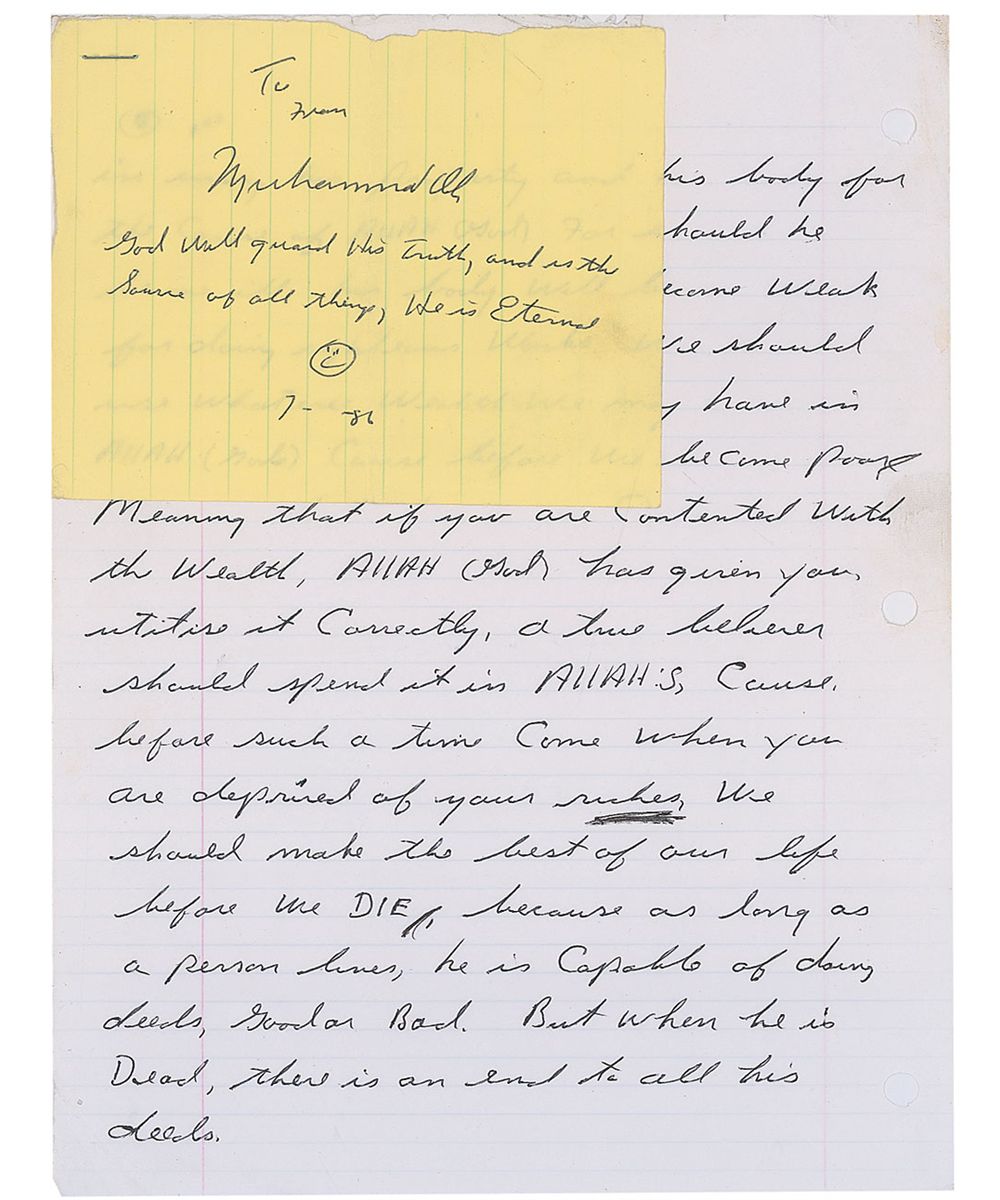 To
From
Muhammad Ali
God Will guard His Truth, and is the
Source of all things, He is Eternal
7- -86
his body for
should he
become Weak
We should
have in
become poor
Meaning that if you are Contented With
the Wealth, AllAH (God) has given you,
utilise it Correctly, a true believer
should spend it in AllAH'S, Cause.
before such a time Come when you
are deprived of your riches, We
should make the best of our life
before we DIE, because as long as
a person lives, he is Capable of doing
deeds, Good or Bad. But when he is
Dead, there is an end to all his
deeds.